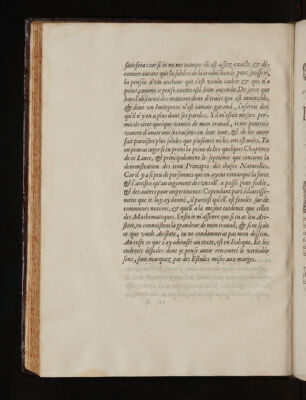 satisfera: car si ie ne me trompe elle est assez exacte, & découure autant que la fidelité de la traduction le peut souffrir,
la pensée d'un autheur qui s'est voulu cacher, & qui n'a
point comme ie pense encore esté bien entendu. De sorte que
hors l'obscurité des matieres dont il traite qui est inuincible,
& dont un Interprete n'est iamais garand, i'oserois dire
qu'il n'y en a plus dans ses paroles. S'il m'estoit mesme permis de tirer quelque vanité de mon trauail, ie me pourrois
vanter d'auoir mis ses raisons en leur iour, & de les auoir
fait paroistre plus solides que plusieurs ne les ont estimées. Tu
en pourras iuger si tu prens la peine de lire quelques Chapitres
de ce Liure, & principalement le septiéme qui contient la
demonstration des trois Principes des choses Naturelles.
Car il y a si peu de personnes qui en ayent remarqué la force
& l'artifice qu'au iugement des uns elle a passé pour foible,
& des autres pour impertinente. Cependant par l'éclaircissement que ie luy ay donné, il paroist qu'elle est fondée sur de
communes notions, & qu'elle a la mesme euidence que celles
des Mathematiques. Enfin ie m'asseure que si tu as leu Aristote, tu connoistras la grandeur de mon trauail, & si tu sçais
ce que vaut Aristote, tu ne condamneras pas mon dessein.
Au reste ce que i'ay adiousté au texte, est en Italique. Et les
endroits difficiles dont ie pense auoir rencontré le veritable
sens, sont marquez par des Estoiles mises aux marges.